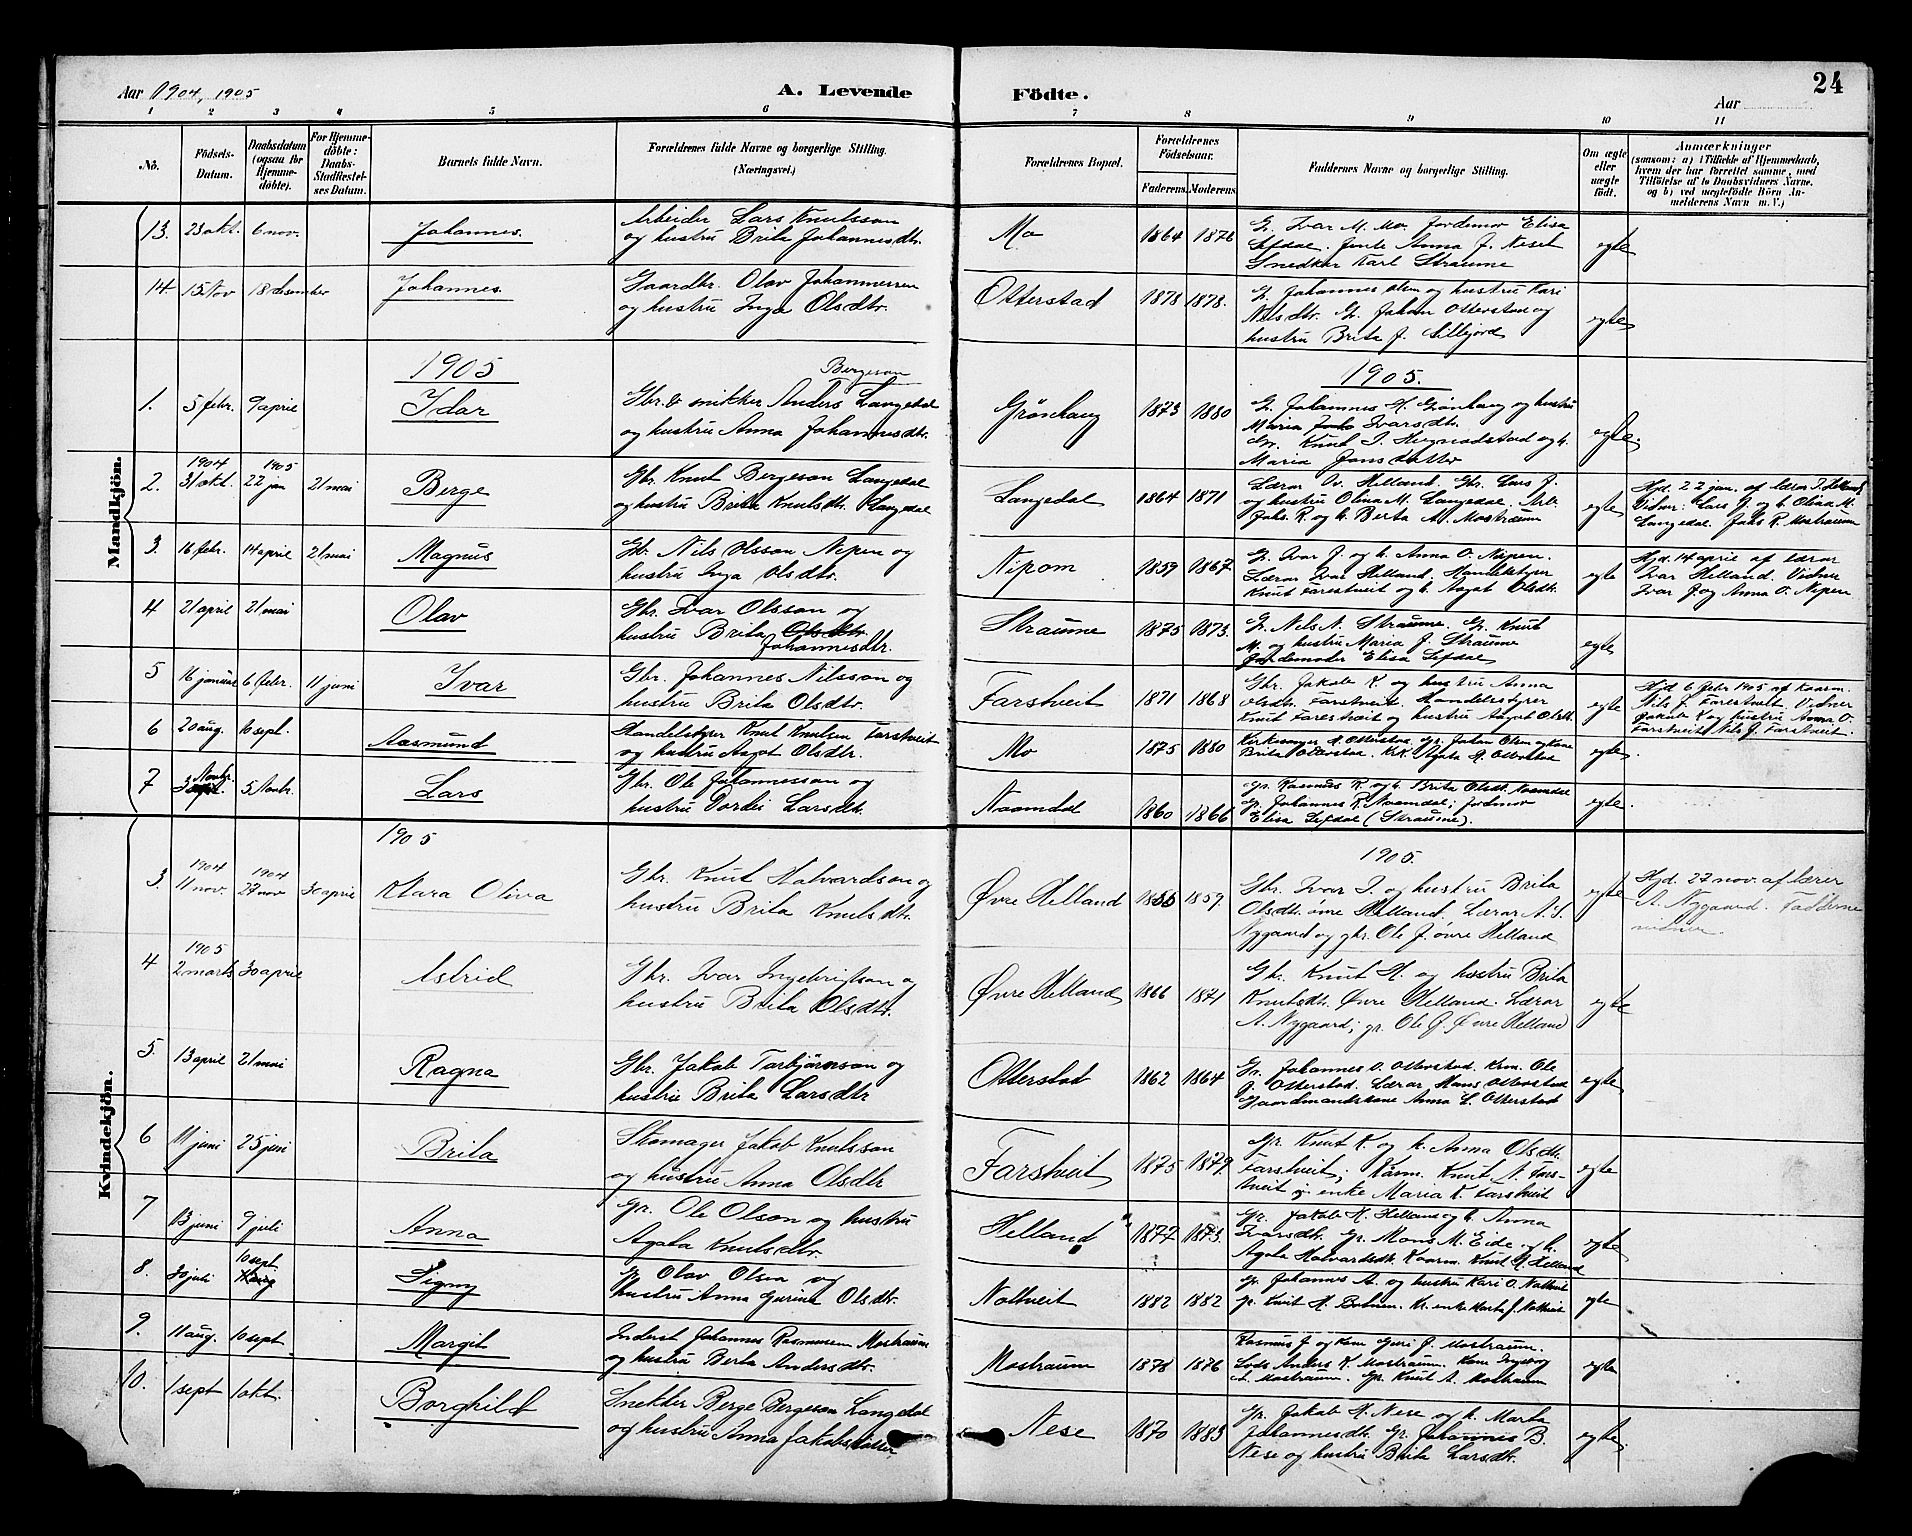 Aar 1904, 1905
A. Levende Födte.
24
Aar
1 2 3 4 5 6 7 8 9 10 11
No.
Födsels-Datum.
Daabsdatum (ogsaa for Hjemme-döbte).
For Hjemme-döbte: Daabs-Stadfæstel-ses Datum.
Barnets fulde Navn.
Forældrenes fulde Navne og borgerlige Stilling.
(Næringsvei.)
Forældrenes Bopæl.
Forældrenes Födselsaar.
Faderens. Moderens.
Faddernes Navne og borgerlige Stilling.
Om ægte eller uægte födt.
Anmærkninger
(saasom: a) i Tilfælde af Hjemmedaab,
hvem der har forrettet samme, med
Tilföielse af to Daabsvidners Navne.
og b) ved uægtefödte Börn An-
melderens Navn m. V.)
Mandkjön.
13. 23 okt. 6 nov. Johannes. Arbeider Lars Knutsson
og hustru Brita Johannesdtr.
Mo 1864 1876 G. Ivar M. Mo. Jordemor Elisa
Sefdal. Jente Anna J. Neset
Snedker Karl Straume
egte
14 15 Nov 18 desember Johannes Gaardbr. Olav Johannessen
og hustru Inga Olsdtr.
Otterstad 1878 1878. G. Johannes Olsen og hustru Kari
Nilsdtr. G. Johan Otterstad og
hustru Brita J. Lillejord
egte
1905
1905.
1. 5 febr. 9 april Idar Gbr. & snikker Anders Bergeson Langedal
og hustru Anna Johannesdtr.
Grønhaug 1873 1880 G. Johannes H. Grønhaug og hustru
Maria Ivarsdtr.
Knut I. Hugnadstad og h.
Maria Jonsdatter
egte.
2. 1904 31 okt. 1905 22 jan 21 mai Berge Gbr. Knut Bergeson Langedal
og hustru Brita Knutsdtr. Langedal
Langedal 1864 1871 Lærar Iv. Helland. Gbr. Lars J.
og hustru Olina M. Langedal, Arb.
Jak. R. og h. Berta A. Mostraum
egte
Hjd. 22 jan. af lærar I. Helland
Vidner: Lars J. og h. Olina M.
Langedal. Jak. R. Mostraum
3. 16 febr. 14 april 21 mai Magnus Gb. Nils Olsson Nipen og
hustru Inga Olsdtr.
Nipom 1859 1867. G. Ivar J. og h. Anna O. Nipen.
Lærar Ivar Helland; Handelsstyrer
Knut Farestveit og h. Aagot Olsdtr.
egte
Hjd. 14 april af lærar
Ivar Helland. Vidner
Ivar J. og Anna O. Nipen
4 21 april 21 mai Olav Gbr. Ivar Olsson og
hustru Brita Olsdtr. Johannesdtr.
Straume 1875 1873. G. Nils N. Straume. G. Knut
M. og hustru Maria J. Straume
Jordemoder Elisa Sefdal
egte
5 16 januar 6 febr. 11 juni Ivar Gbr. Johannes Nilsson og
hustru Brita Olsdtr.
Farstveit 1871 1868 Gbr. Jakob K. og hustru Anna
Olsdtr. Farstveit. Handelsstyrer
Knut Farestveit og hustru Aagot Olsdt.
egte
Hjd 6 febr 1905 af Kaarm.
Nils J. Farestveit. Vidner
Jakob K og hustru Anna O.
Farstveit Nils J. Farstveit.
6 20 aug. 10 sept. Aasmund Handelsstyrer Knut Knutsen Farstveit
og hustru Aagot Olsdtr.
Mo 1875 1880 Kirkesanger H. Otterstad, Gr. Johan Olsen og kone
Brita Otterstad. Agata R. Otterstad
egte
7 3 Novbr. 5 Novbr. Lars Gbr. Ole Johannesson og
hustru Tordei Larsdtr.
Naamdal 1860 1866 Gr. Rasmus K. og h. Brita Olsdt. Naamdal
Gr. Johannes K. Naamdal; Jordmor
Elisa Sefdal (Straume).
egte
Kvindekjön.
1905
1905.
3. 1904 11 nov. 1904 27 nov 30 april Klara Oliva Gbr. Knut Halvardson og
hustru Brita Knutsdtr.
Øvre Helland 1855 1859. Gbr. Ivar I. og hustru Brita
Olsdtr. øvre Helland. Lærar A. S.
Nygaard og gbr. Ole J. øvre Helland
egte
Hjd. 27 nov. af lærer
A. Nygaard. Fadderne
vidner.
4 1905 2 marts 30 april Astrid Gbr. Ivar Ingebrigtson og
hustru Brita Olsdtr.
Øvre Helland 1866 1871 Gb. Knut H. og hustru Brita
Knutsdt. Øvre Helland. Lærar
A. Nygaard; gr. Ole J. Øvre Helland
egte
5. 13 april 21 mai Ragna Gbr. Jakob Torbjørnson og
hustru Brita Larsdtr
Otterstad 1862 1864 Gr. Johannes O. Otterstad. Krm. Ole
J. Otterstad. Lærar Hans Otterstad
Gaardmandskone Anna L. Otterstad
egte
6 11 juni 25 juni Brita Skomager Jakob Knutsson
og hustru Anna Olsdtr
Farstveit 1875 1879. Gr. Knut K. og h. Anna Olsdt.
Farstveit; Kårm. Knut N. Fars-
tveit og enke Maria K. Farstveit
egte
7 13 juni 9 juli Anna Gr. Ole Olson og hustru
Agata Knutsdtr.
Helland 1877 1873. Gr. Jakob H. Helland og h. Anna
Ivarsdt. Gr. Mons M. Eide og h.
Agata Halvardsdt. Kaarm. Knut H. Helland
egte
8. 30 juli 10 sept. Signy Gr. Olav Olsen og
hustru Anna Gurine Olsdtr.
Noltveit 1882 1882 Gr. Johannes A. og hustru Kari O. Noltveit
Gr. Knut H. Botnen. Kr. enke Marta J. Noltveit
egte
9. 11 aug. 10 sept Margit Inderst Johannes Rasmussen Mostraum
og hustru Berta Andersdtr.
Mostraum 1878 1876 Rasmus J og kone Guri J. Mostraum.
Lods Anders K. Mostraum. Kone Ingeborg
A. Mostraum. Gr. Knut A. Mostraum
egte
10. 1 sept 1 okt. Borghild Snekker Berge Bergeson Langedal
og hustru Anna Jakobsdatter
Nese 1870 1883 Gr. Jakob H. Nese og h. Marta
Johannesdt. Gr. Johannes B.
Nese og hustru Brita Larsdt.
egte.